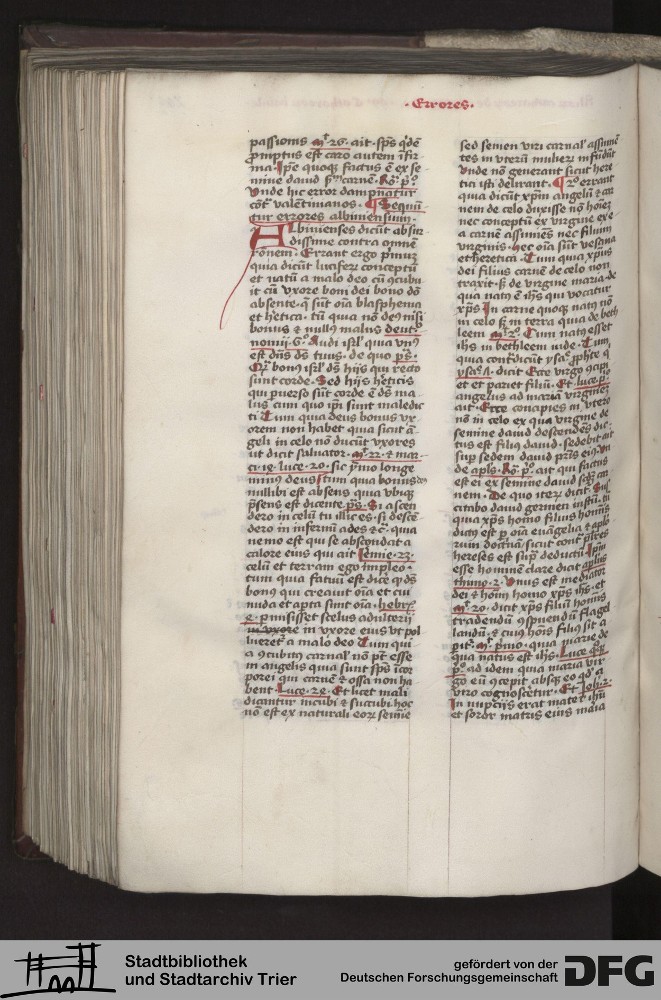 · Errores ·
passionis mͬ 26 · ait · sp̄s q̇dē
promptus est caro autem īfir
ma · Ip̄e quoqꝫ factus ē ex se
mine dauid s̄m carnē · Ro · pͦ ·
Vnde hic error dampnatur
cōt͛ valētinianos · ¶ Sequū
tur errores albinensium ·
Albinenses dicūt absur
dissime contra omnē
rōnem · Errant ergo pͥmuꝫ
quia dicūt luciferꝝ conceptū
et natū a malo deo cū ꝯcubu
it cū vxore boni dei bono dō
absente · q̄ sūt oīa blasphema
et hetica · tū quia nō deꝰ nisi
bonus & nullꝰ malus deut͛o
nomii · 6 · Audi isrl̓ quia vnꝰ
est dn̄s dꝰ tuus · de quo ps̄ ·
Q̄ bonꝰ isrl̓ dꝰ hijs qui recto
sunt corde · Sed hijs het͛icis
qui puerso sūt corde ē dꝰ ma
lus cum quo ip̄i sunt maledic
ti Tum quia deus bonus vx
orem non habet quia sicut ā
geli in celo nō ducūt vxores
ut dicit saluator · mͬ 22 · & mar
ci · 12 · luce · 20 · sic pͥmo longe
minꝰ deus Itum quia bonus deꝰ
nullibi est absens quia vbiqꝫ
p̄sens est dicente ps̄ · Si ascen
dero in celū tu illic es · si descē
dero in infernū ades & c̄ · quia
nemo est qui se abscondat a
calore eius qui ait Iemie · 23 ·
celū et terram ego impleo ·
tum quia fatuū est dic͛e q̇ dꝰ
bonꝰ qui creauit oīa et cui
nuda et apta sunt oīa · hebrꝫ
pmisisset scelus adulterij
in vxore eius vt pol
luerēt͛ a malo deo Tum qui
a ꝯcubitꝰ carnal̓ nō pͭt esse
in angelis quia sunt sp̄s īcor
porei qui carnē & ossa non ha
bent · Luce · 24 · Et licet mali
dicantur incubi & succubi hoc
nō est ex naturali eoꝝ semīe
sed semen viri carnal̓ assumē
tes in vterū mulieꝝ infūdūt
Vnde nō generant sicut here
tici isti delirant · ¶ 2ͦ errant
quia dicūt xp̄m angelū & car
nem de celo duxisse nō hoīeꝫ
nec conceptū ex virgine ex e
a carnē assumēs nec filium
virginis · hec oīa sūt vesana
et heretica · Tum quia xp̄us
dei filius carnē de celo non
traxit · s̄ de virgine maria de
qua natꝰ ē ihs̄ qui vocatur
xp̄s · In carne quoqꝫ natꝰ nō
in celo s̄ in terra quia de beth
leem mͬ 2ͦ · Tum natꝰ esset
ihs̄ in bethleem iude · Tum
quia cont͛dicūt ysa · pphete q̇
ysa · A · dicit Ecce virgo ꝯcipi
et et pariet filiū · Et luce · pͦ
angelus ad mariā virginē
ait · Ecce concipies in vtero
nō in celo ex qua virgine de
semine dauid descendēs dic
tus est filiꝰ dauid · sedebit ait
sup sedem dauid pr̄is eiꝰ · Vn
de apl̓s · Ro · pͦ · ait qui factus
est ei ex semine dauid s̄m car
nem · De quo iteꝝ dicit · Sus
citabo dauid germen iustū · tū
quia xp̄s homo filius hominis
dictꝰ est p oīa euāgelia & aplo
rum doctrinā · sicut cont͛ p̄res
hereses est supͣ deductū · Ip̄m
esse hominē clare dicit apl̓us
thimo · 2 · Vnus est mediator
dei & hoīm homo xp̄s ihs̄ · et
mͬ 20 · dicit xp̄s filiū hominis
tradendū ꝯspuendū flagel
landū · & cuiꝰ hoīs filiꝰ sit a
pit · mͬ pͥmo · quia marie de
qua natus est ihs̄ · Luce quoqꝫ
pͦ ad idem quia maria vir
go eū ꝯcepit absqꝫ eo qͩ a
viro cognoscēt͛ur · Et Joh · 2 ·
In nupcijs erat mater ihū
et soror matris eius maria
Stadtbibliothek
und Stadtarchiv Trier
gefördert von der
Deutschen Forschungsgemeinschaft
DFG